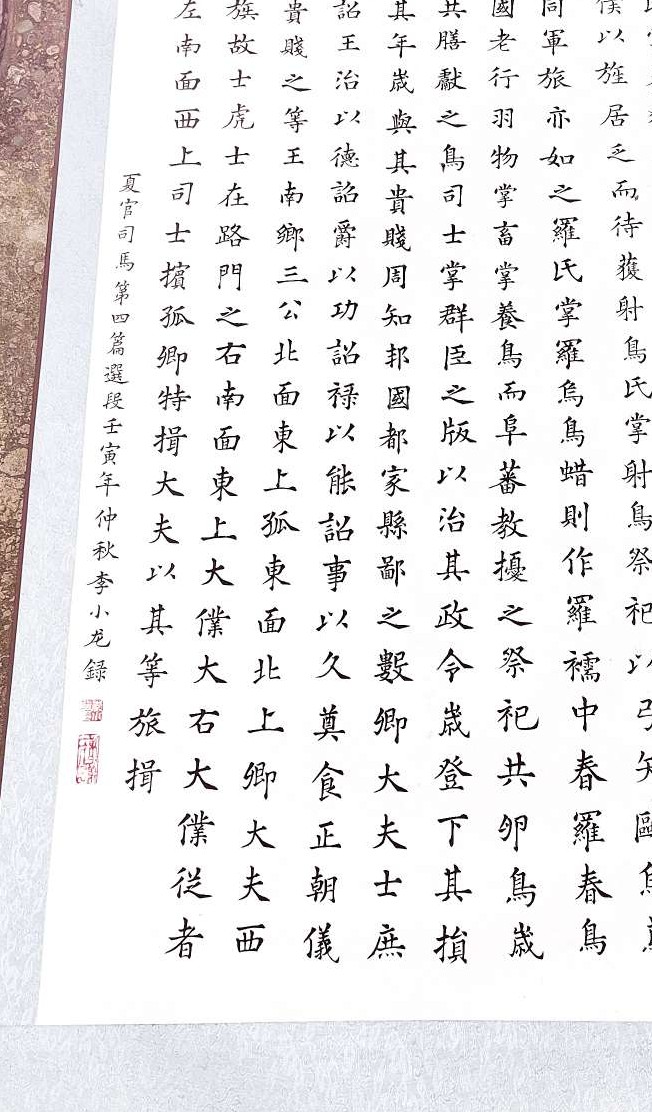 僕以旌居乏而待獲射鳥氏掌射鳥祭祀以弓矢歐鳥
同軍旅亦如之羅氏掌羅烏鳥蜡則作羅襦中春羅春鳥
國老行羽物掌畜掌養鳥而阜蕃教擾之祭祀共卵鳥歲
共膳獻之鳥司士掌群臣之版以治其政令歲登下其損
其年歲與其貴賤周知邦國都家縣鄙之數卿大夫士庶
詔王治以德詔爵以功詔祿以能詔事以久奠食正朝儀
貴賤之等王南鄉三公北面東上孤東面北上卿大夫西
旗故士虎士在路門之右南面東上大僕大右大僕從者
左南面西上司士擯孤卿特揖大夫以其等旅揖
夏官司馬第四篇選段壬寅年仲秋李小龙録